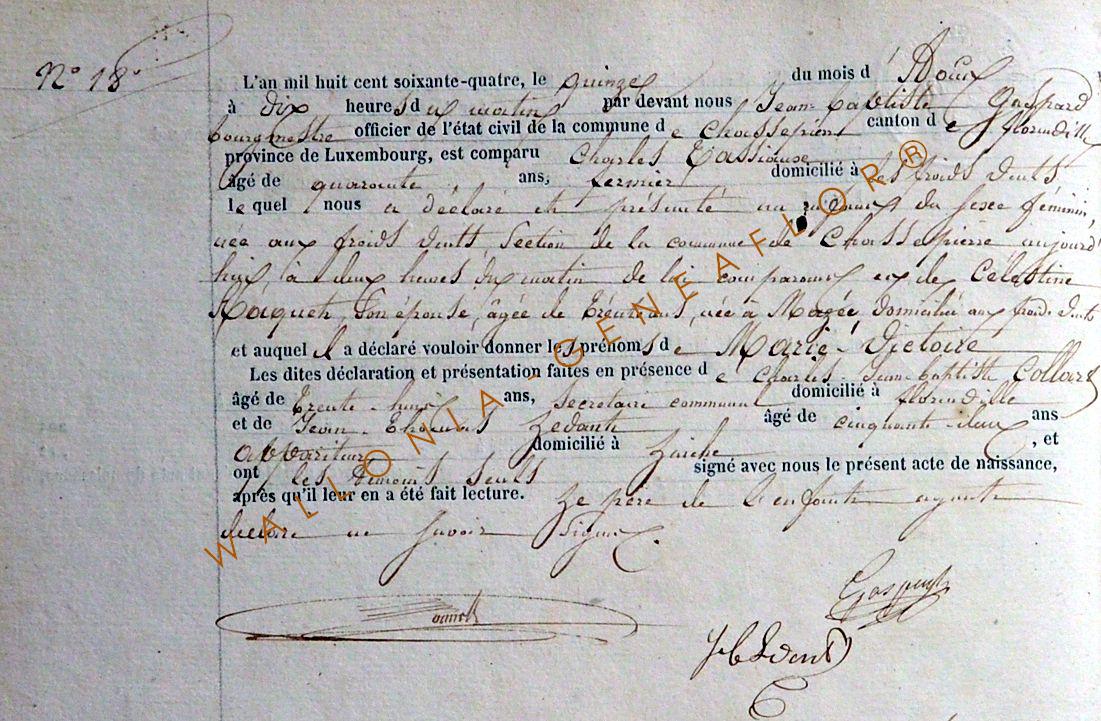 N° 18
L'an mil huit cent soixante-quatre, le quinze du mois d' Aout
à dix heures du matin par devant nous Jean-Baptiste Gaspard
bourgmestre officier de l'état civil de la commune de Chassepierre canton de florenville
province de Luxembourg, est comparu Charles
âgé de quarante ans, fermier domicilié à les froids vents
le quel nous a déclaré et présenté un enfant du sexe féminin,
née aux froids vents, Section de la commune de Chassepierre aujourd'
hui, à deux heures du matin de lui comparant et de Célestine
son épouse, âgée de trente ans, née à domiciliée aux froids vents
et auquel il a déclaré vouloir donner les prénoms de Marie-Victoire
Les dites déclaration et présentation faites en présence de Charles-Jean-Baptiste Collard
âgé de trente-huit ans, secrétaire communal domicilié à florenville
et de Jean- âgé de cinquante-deux ans
domicilié à Laiche , et
ont les témoins seuls signé avec nous le présent acte de naissance,
après qu'il leur en a été fait lecture. Le père de l'enfant ayant
déclaré ne savoir signer.
Gaspard
WALLONIA-GENEAFLOR®